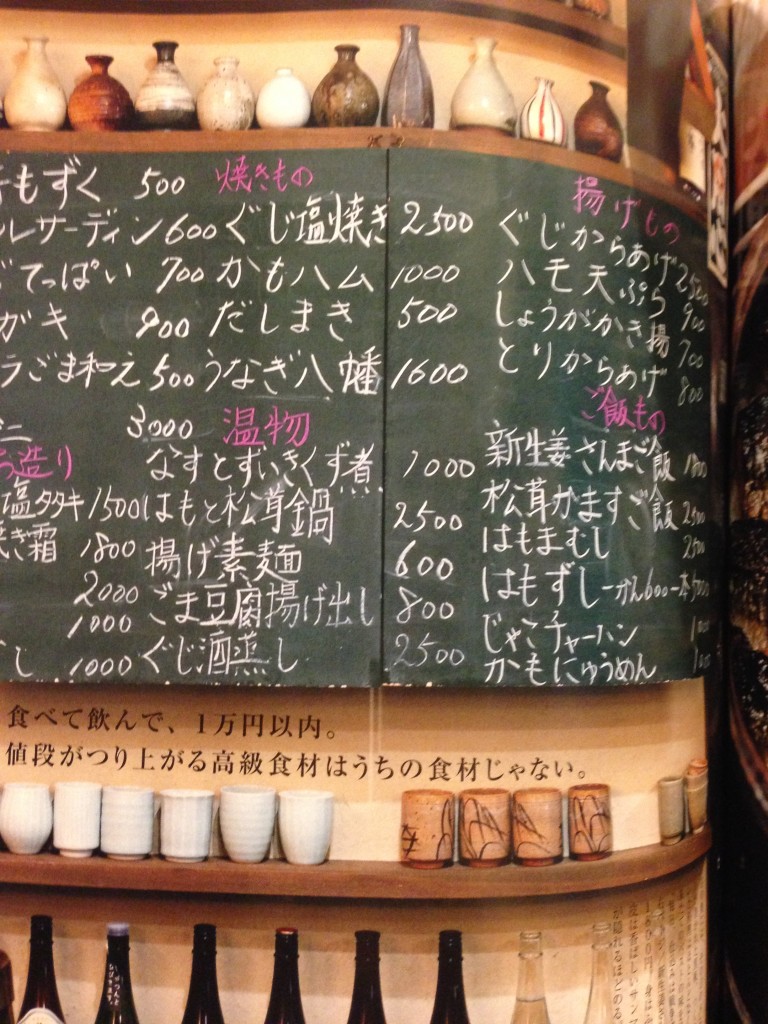 もずく 500
レサーディン 600
てっぱい 700
ガキ 900
ラごま和え 500
ニ 3000
お造り
塩タタキ 1500
焼き霜 1800
2000
1000
し 1000
焼きもの
ぐじ塩焼き 2500
かもハム 1000
だしまき 500
うなぎ八幡 1600
温物
なすとずいきくず煮 1000
はもと松茸鍋 2500
揚げ素麺 600
ごま豆腐揚げ出し 800
ぐじ酒蒸し 2500
揚げもの
ぐじからあげ 2500
ハモ天ぷら 900
しょうがかき揚 700
とりからあげ 800
ご飯もの
新生姜さんまご飯
松茸かますご飯 2500
はもまむし 2500
はもずし一かん600一本
じゃこチャーハン
かもにゅうめん
食べて飲んで、1万円以内。
値段がつり上がる高級食材はうちの食材じゃない。